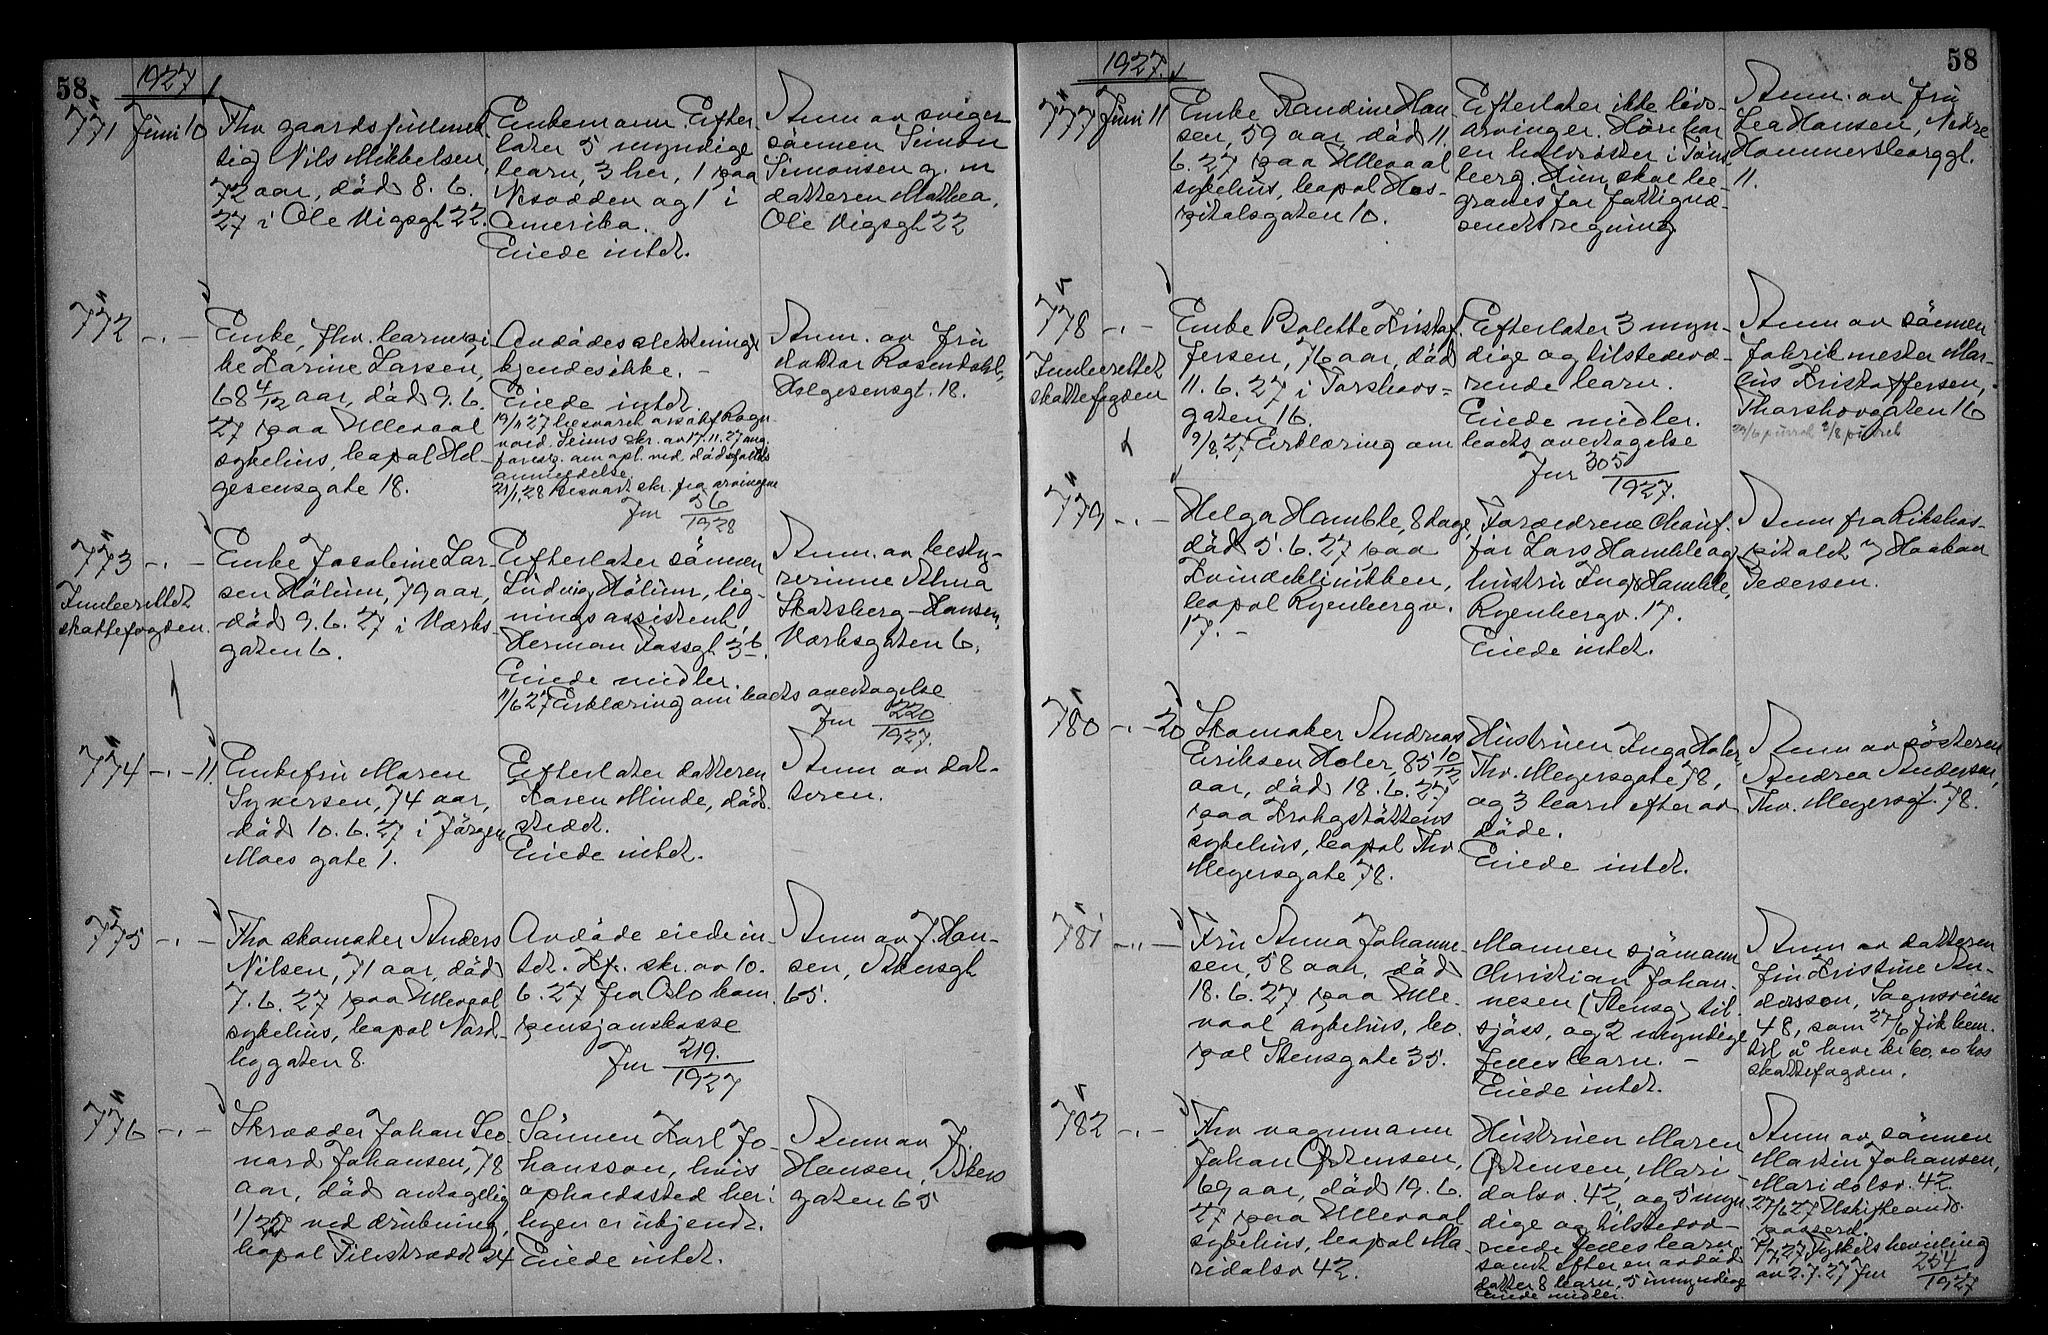 58
1927
771 Juni 10
Fhv gaardsfuldmek
tig Nils Mikkelsen,
72 aar, död 8. 6.
27 i Ole Vigsgt 22.
Enkemann. Efter-
later 5 myndige
barn, 3 her, 1 paa
Nesodden og 1 i
Amerika.
Eiede intet.
Anm av sviger
sönnen Simon
Simonsen g. m
datteren Mathea,
Ole Vigsgt 22
772 -"-
Enke, fhv. barnepi
ke Karine Larsen,
68 4/12 aar, död 9. 6.
27 paa Ullevaal
sykehus, bopal Hel-
gesensgate 18.
Avdödes slektninger
kjendes ikke. -
Eiede intet.
19/11 27 besvaret o.r.sakf. Ragn
vald Seims skr. av 17.11.27 ang.
foresp. om opl. ved dödsfalds
anmeldelse
21/1 28 besvart skr. fra arvingene
Jnr 56/1928
Anm. av Fru
doktor Rosendahl,
Helgesensgt. 18.
773 -"-
Innberettet
skattefogden.
Enke Josefine Lar-
sen Hölum, 79 aar,
död 9. 6. 27 i Verks-
gaten 6.
Efterlater sönnen
Ludvig Hölum, lig-
ningsassistent,
Herman Fossgt 3 b.
Eiede midler.
11/6 27 Erklæring om boets overtagelse
Jnr 220/1927.
Anm. av besty-
rerinne Alma
Skatsberg-Hansen,
Verksgaten 6.
774 -"- 11
Enkefru Maren
Syversen, 74 aar,
död 10. 6. 27 i Jörgen
Moes gate 1.
Efterlater datteren
Karen Minde, död-
stedet.
Eiede intet.
Anm av dat-
teren.
775 -"-
Fhv skomaker Anders
Nilsen, 71 aar, död
7. 6. 27 paa Ullevaal
sykehus, bopal Nord-
bygaten 8.
Avdöde eiede in-
tet. Kfr. skr. av 10.
6. 27 fra Oslo kom.
pensjonskasse
Jnr 219./1927
Anm av J. Han-
sen, Akersgt
65.
776 -"-
Skrædder Johan Leo-
nard Johansen, 78
aar, död antagelig
1/5 27 ved drukning,
bopal Filestrædet 24
Sönnen Karl Jo-
hansson, hvis
opholdssted her i
byen er ukjendt.
Eiede intet.
Anm av J.
Hansen, Akers
gaten 65
58
1927.
777 Juni 11
Enke Randine Han-
sen, 59 aar, död 11.
6. 27 paa Ullevaal
sykehus, bopal Hos-
pitalsgaten 10.
Efterlater ikke livs-
arvinger. Har har
en halvsöster i Töns
berg. Hun skal be-
graves for fattigvæ-
senets regning
Anm. av Fru
Lea Hansen, Nedre
Hammersborggt.
11.
778 -"-
Innberettet
skattefogden
Enke Bolette Kristof-
fersen, 76 aar, död
11. 6. 27 i Torshovs-
gaten 16.
9/8 27 Erklæring om boets overtagelse
Jnr 305/1927.
Efterlater 3 myn-
dige og tilstedevæ-
rende barn.
Eiede midler.
Anm av sönnen
fabrikmester Mar-
lius Kristoffersen,
Thorshovgaten 16
29/6 purret 2/8 purret
779 -"-
Helga Hamble, 8 dage,
död 5. 6. 27 paa
Kvindeklinikken,
bopal Ryenbergv.
17. -
Forældrene Chauf-
för Lars Hamble og
hustru Inga Hamble,
Ryenbergv. 17.
Eiede intet.
Anm fra Rikshos-
pitalet v Haakon
Pedersen.
780 -"- 20
Skomaker Andreas
Eriksen Holer, 85 10/12
aar, död 18. 6. 27
paa Krohgstöttens
sykehus, bopal Thv.
Meyersgate 78.
Hustruen Inga Holer
Thv. Meyersgate 78,
og 3 barn efter av
döde.
Eiede intet.
Anm av sösteren
Andrea Anderson,
Thv. Meyersgt. 78.
781 -"-
Fru Anna Johanne-
sen, 58 aar, död
18. 6. 27 paa Ulle-
vaal sykehus, bo-
pal Stensgate 35.
Mannen sjömann
Christian Johan-
nesen (Stensg) til-
sjöss, og 2 myndige
felles barn. -
Eiede intet.
Anm av datteren
fru Kristine An-
dersson, Sognsveien
48, som 27/6 fik bem.
til å heve kr 60,00 hos
skattefogden.
782 -"-
Fhv vognmann
Johan Ørtensen,
69 aar, död 19. 6.
27 paa Ullevaal
sykehus, bopal Ma-
ridalsv 42.
Hustruen Maren
Ørtensen, Mari-
dalsv. 42, og 5 myn
dige og tilstedevæ-
rende felles barn
samt efter en avdöd
datter 8 barn, 5 umyndige
Eiede midler.
Anm av sönnen
Martin Johansen,
Maridalsv. 42.
27/6 27 Uskifteand.
passerd.
7/7 27 Fylkets bevilling
av 2. 7. 27 Jnr 254/1927